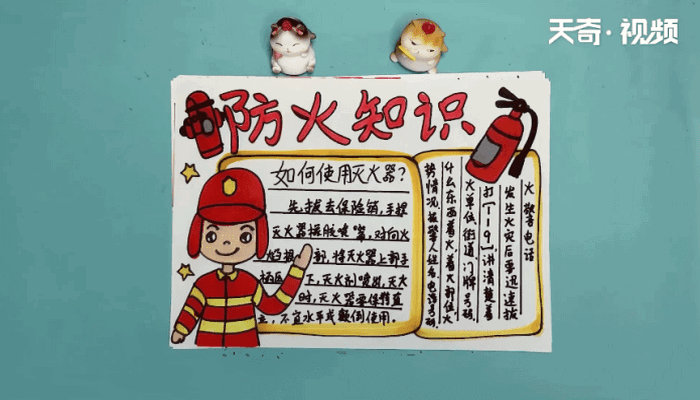 天奇·视频
防火知识
如何使用灭火器?
先拔去保险销,手握
灭火器橡胶喷嘴,对向火
焰根部,将灭火器上部手
柄压下,灭火剂喷出,灭火
时,灭火器要保持直
立,不宜水平或颠倒使用。
火警电话
发生火灾后要迅速拔
打【119】,讲清楚着
火单位街道、门牌号码、
什么东西着火、着火部位火
势情况、报警人姓名电话号码